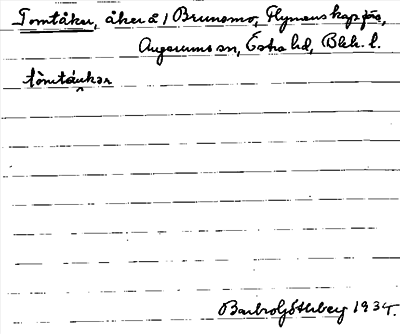 Tomtåker, åker å 1 Brunsmo, Flymens kapförs,
Augerums sn, Östra hd, Blek. l.
tòmtáukər
Barbro Götherberg 1934.